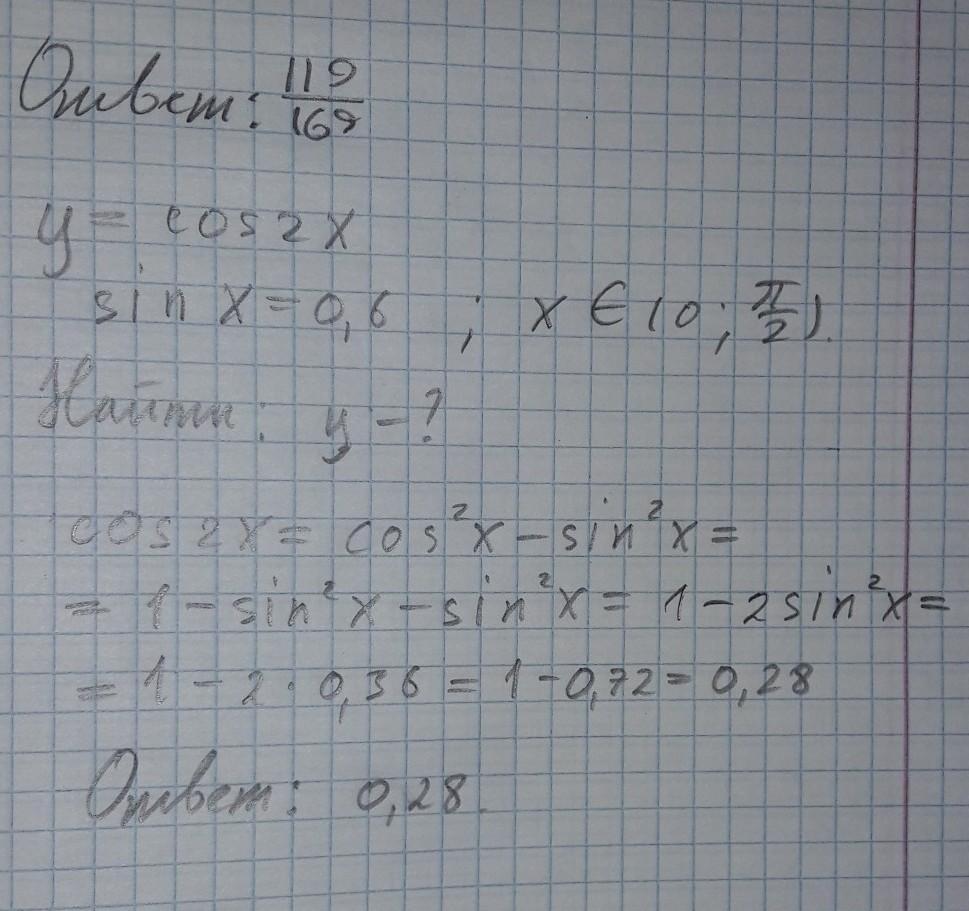 Ответ: 119/169
y = cos2x
sin x = 0,6 ; x ∈ (0; π/2).
Найти: y - ?
cos2x = cos²x - sin²x =
= 1 - sin²x - sin²x = 1 - 2sin²x =
= 1 - 2 · 0,36 = 1 - 0,72 = 0,28
Ответ: 0,28.